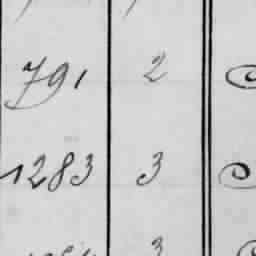 791 2
1283 3
3